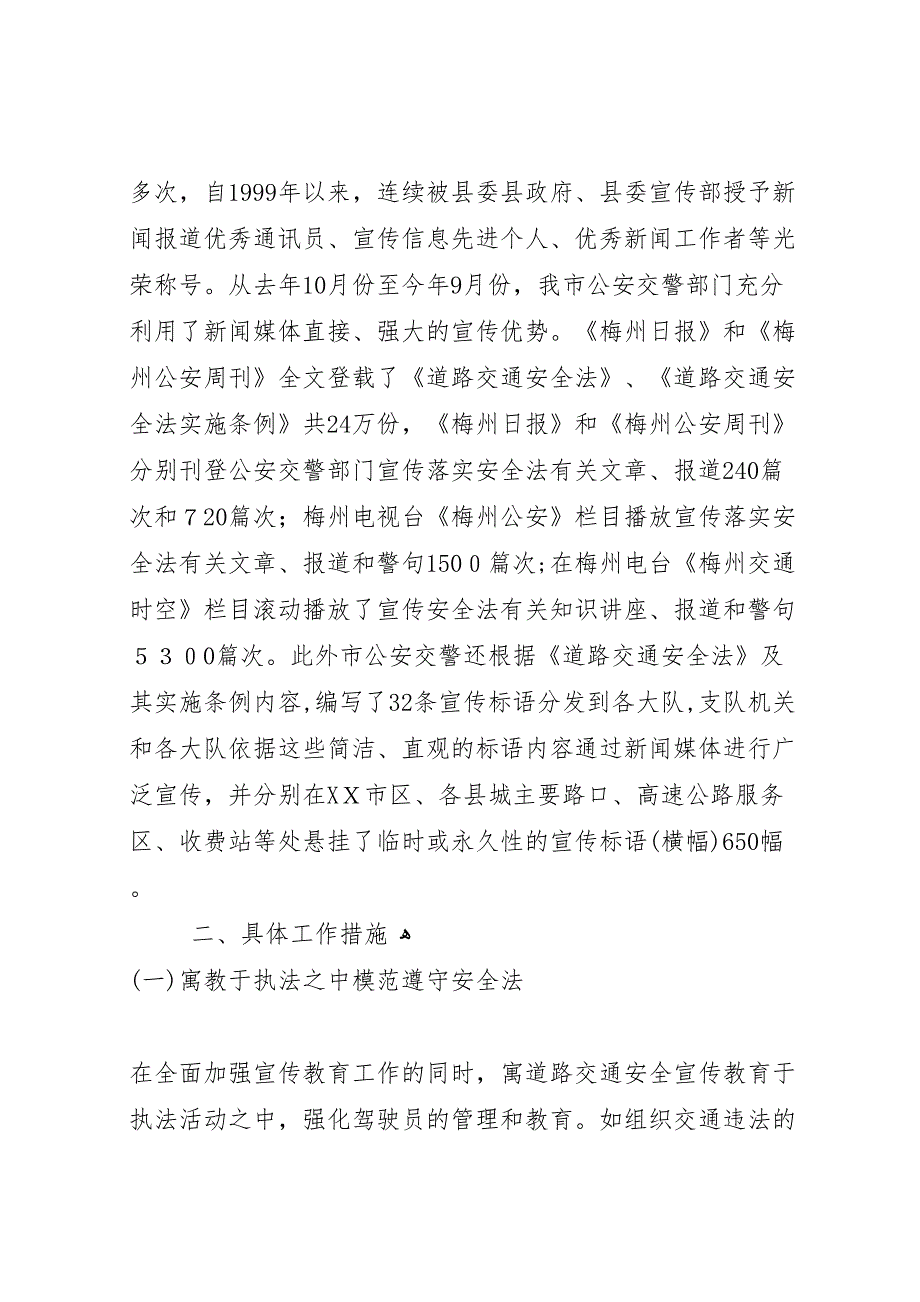 多次，自1999年以来，连续被县委县政府、县委宣传部授予新
闻报道优秀通讯员、宣传信息先进个人、优秀新闻工作者等光
荣称号。从去年10月份至今年9月份，我市公安交警部门充分
利用了新闻媒体直接、强大的宣传优势。《梅州日报》和《梅
州公安周刊》全文登载了《道路交通安全法》、《道路交通安
全法实施条例》共24万份，《梅州日报》和《梅州公安周刊》
分别刊登公安交警部门宣传落实安全法有关文章、报道240篇
次和７20篇次；梅州电视台《梅州公安》栏目播放宣传落实安
全法有关文章、报道和警句150０篇次;在梅州电台《梅州交通
时空》栏目滚动播放了宣传安全法有关知识讲座、报道和警句
５３００篇次。此外市公安交警还根据《道路交通安全法》及
其实施条例内容,编写了32条宣传标语分发到各大队,支队机关
和各大队依据这些简洁、直观的标语内容通过新闻媒体进行广
泛宣传，并分别在XＸ市区、各县城主要路口、高速公路服务
区、收费站等处悬挂了临时或永久性的宣传标语(横幅)650幅
。
二、具体工作措施
(一)寓教于执法之中模范遵守安全法
在全面加强宣传教育工作的同时，寓道路交通安全宣传教育于
执法活动之中，强化驾驶员的管理和教育。如组织交通违法的